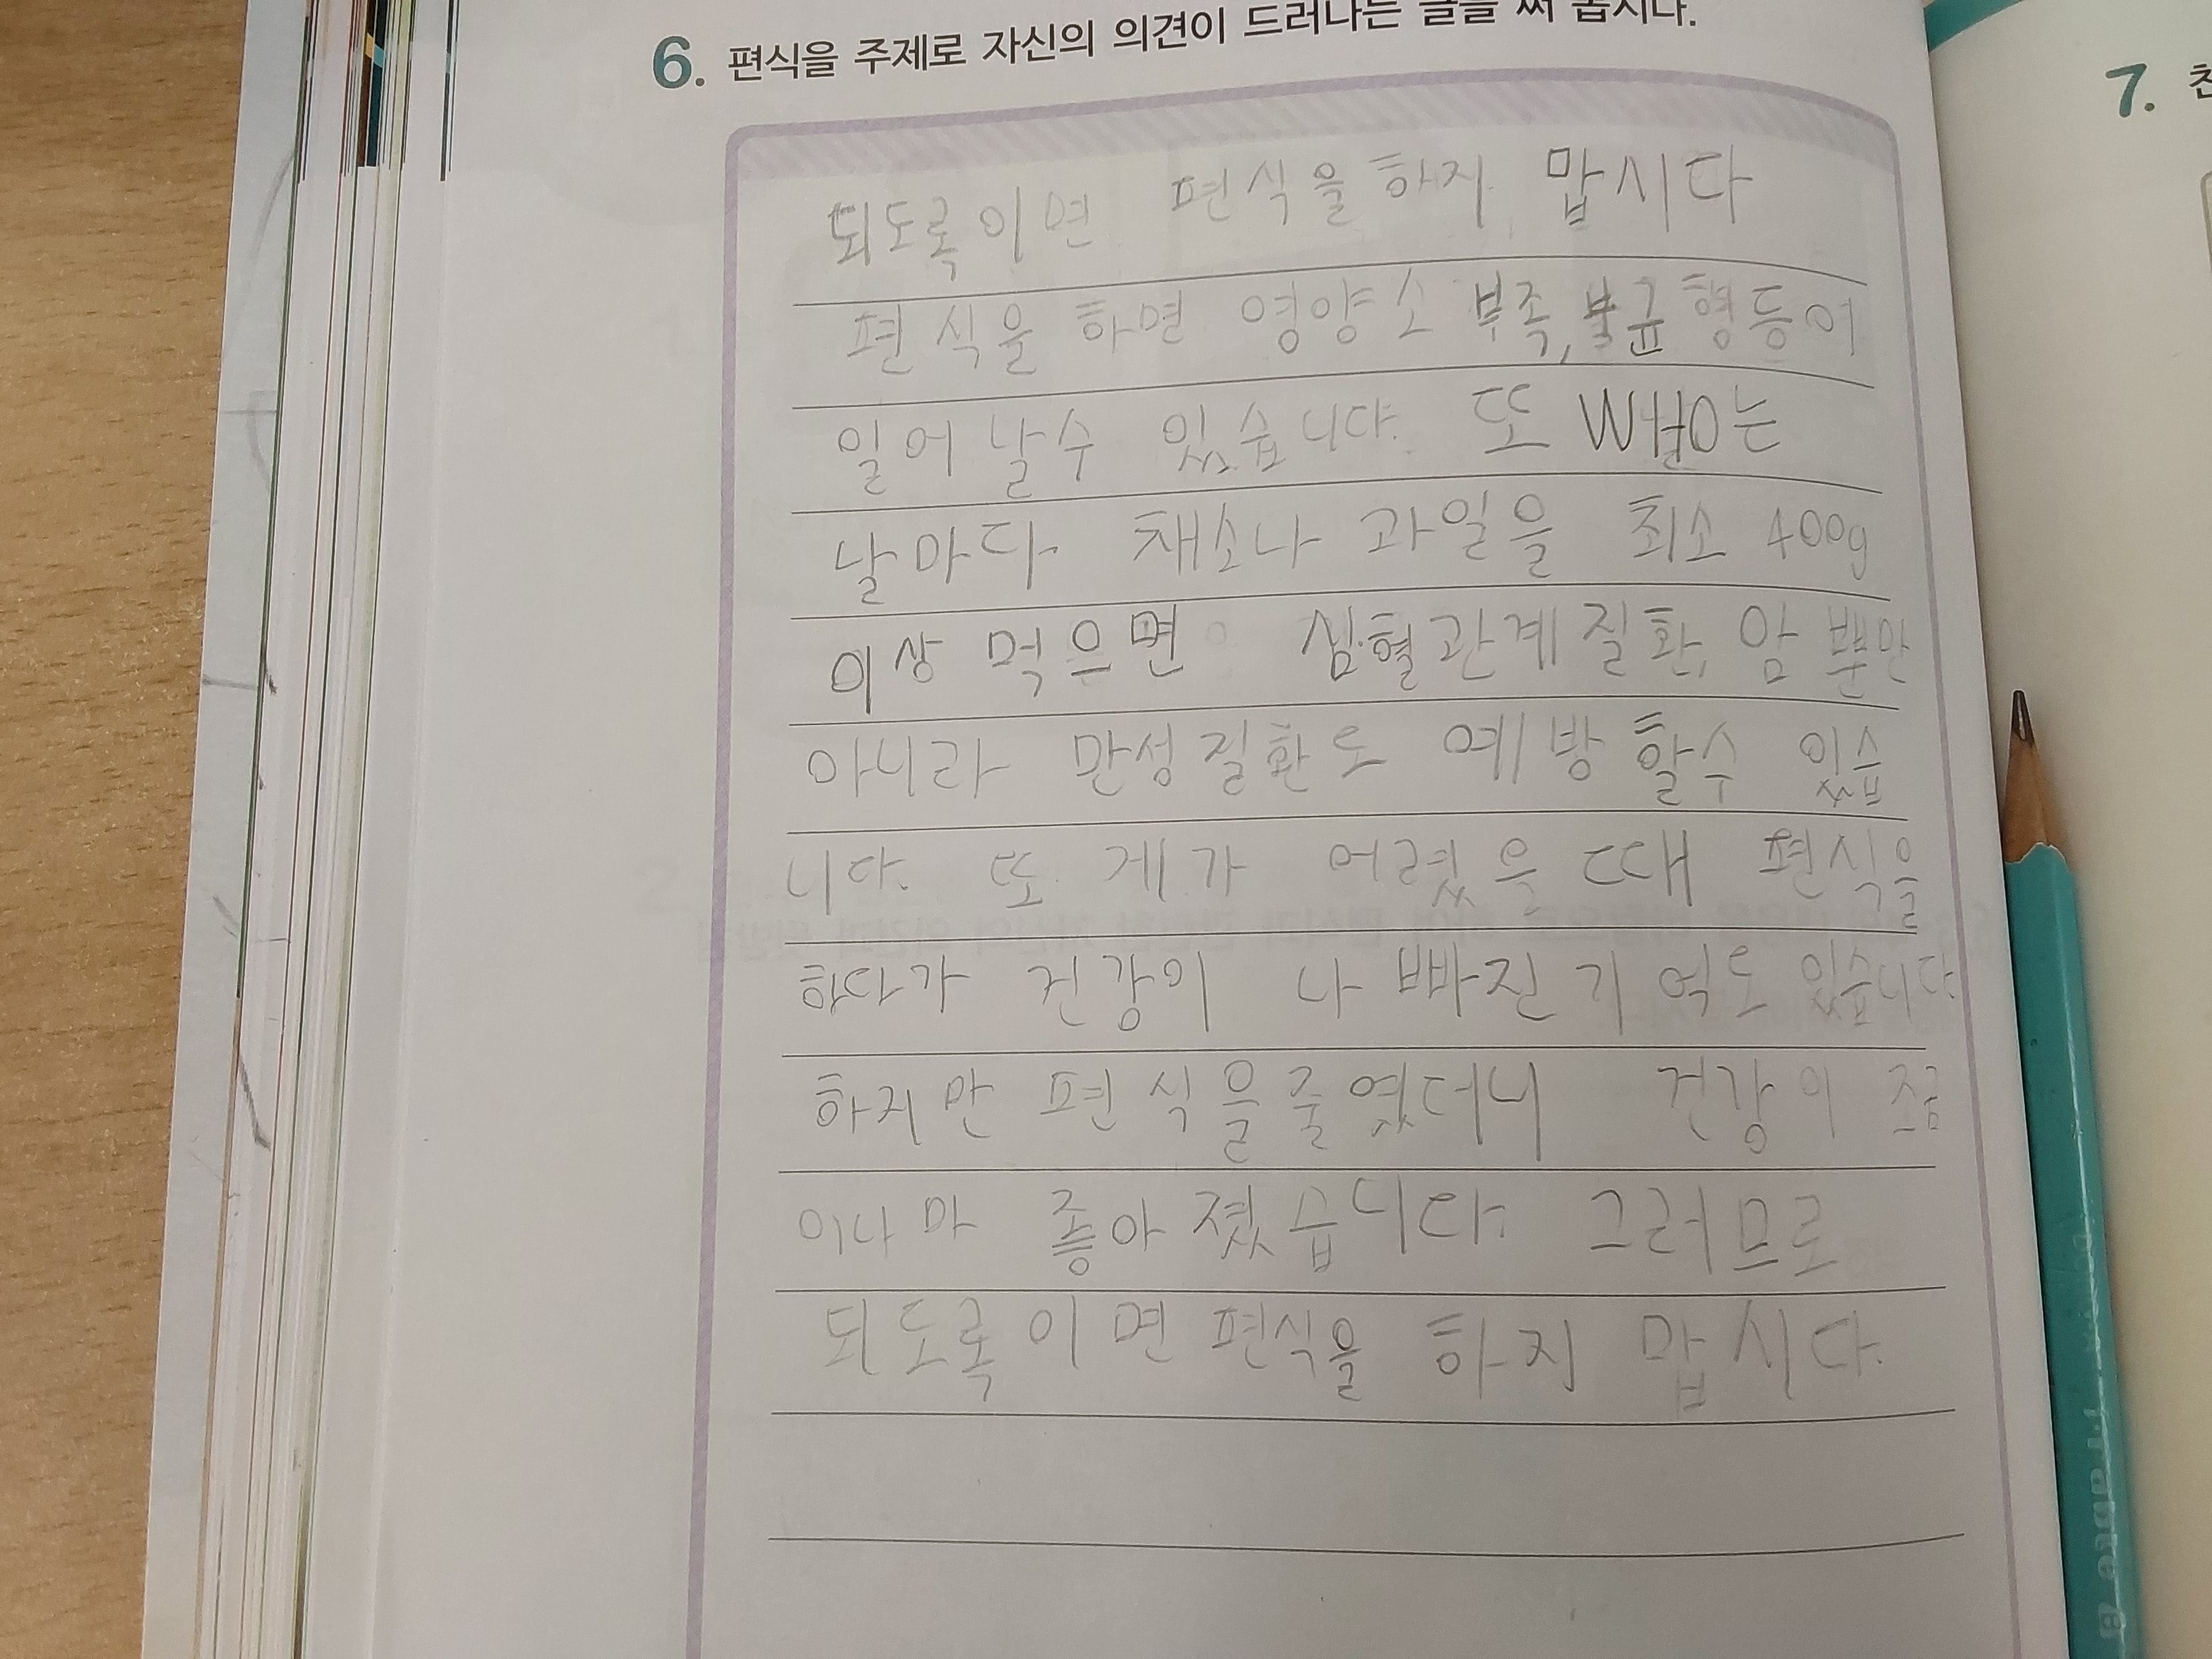 6. 편식을 주제로 자신의 의견이 드러나는 글을 써 봅시다.
7.
되도록이면 편식을 하지 맙시다
편식을 하면 영양소 부족, 불균형등이
일어날수 있습니다. 또 WHO는
날마다 채소나 과일을 최소 400g
이상 먹으면 심혈관계질환, 암 뿐만
아니라 만성질환도 예방할수 있습
니다. 또 게가 어렸을 때 편식을
하다가 건강이 나빠진 기억도 있습니다.
하지만 편식을 줄였더니 건강이 조금
이나마 좋아졌습니다. 그러므로
되도록이면 편식을 하지 맙시다.